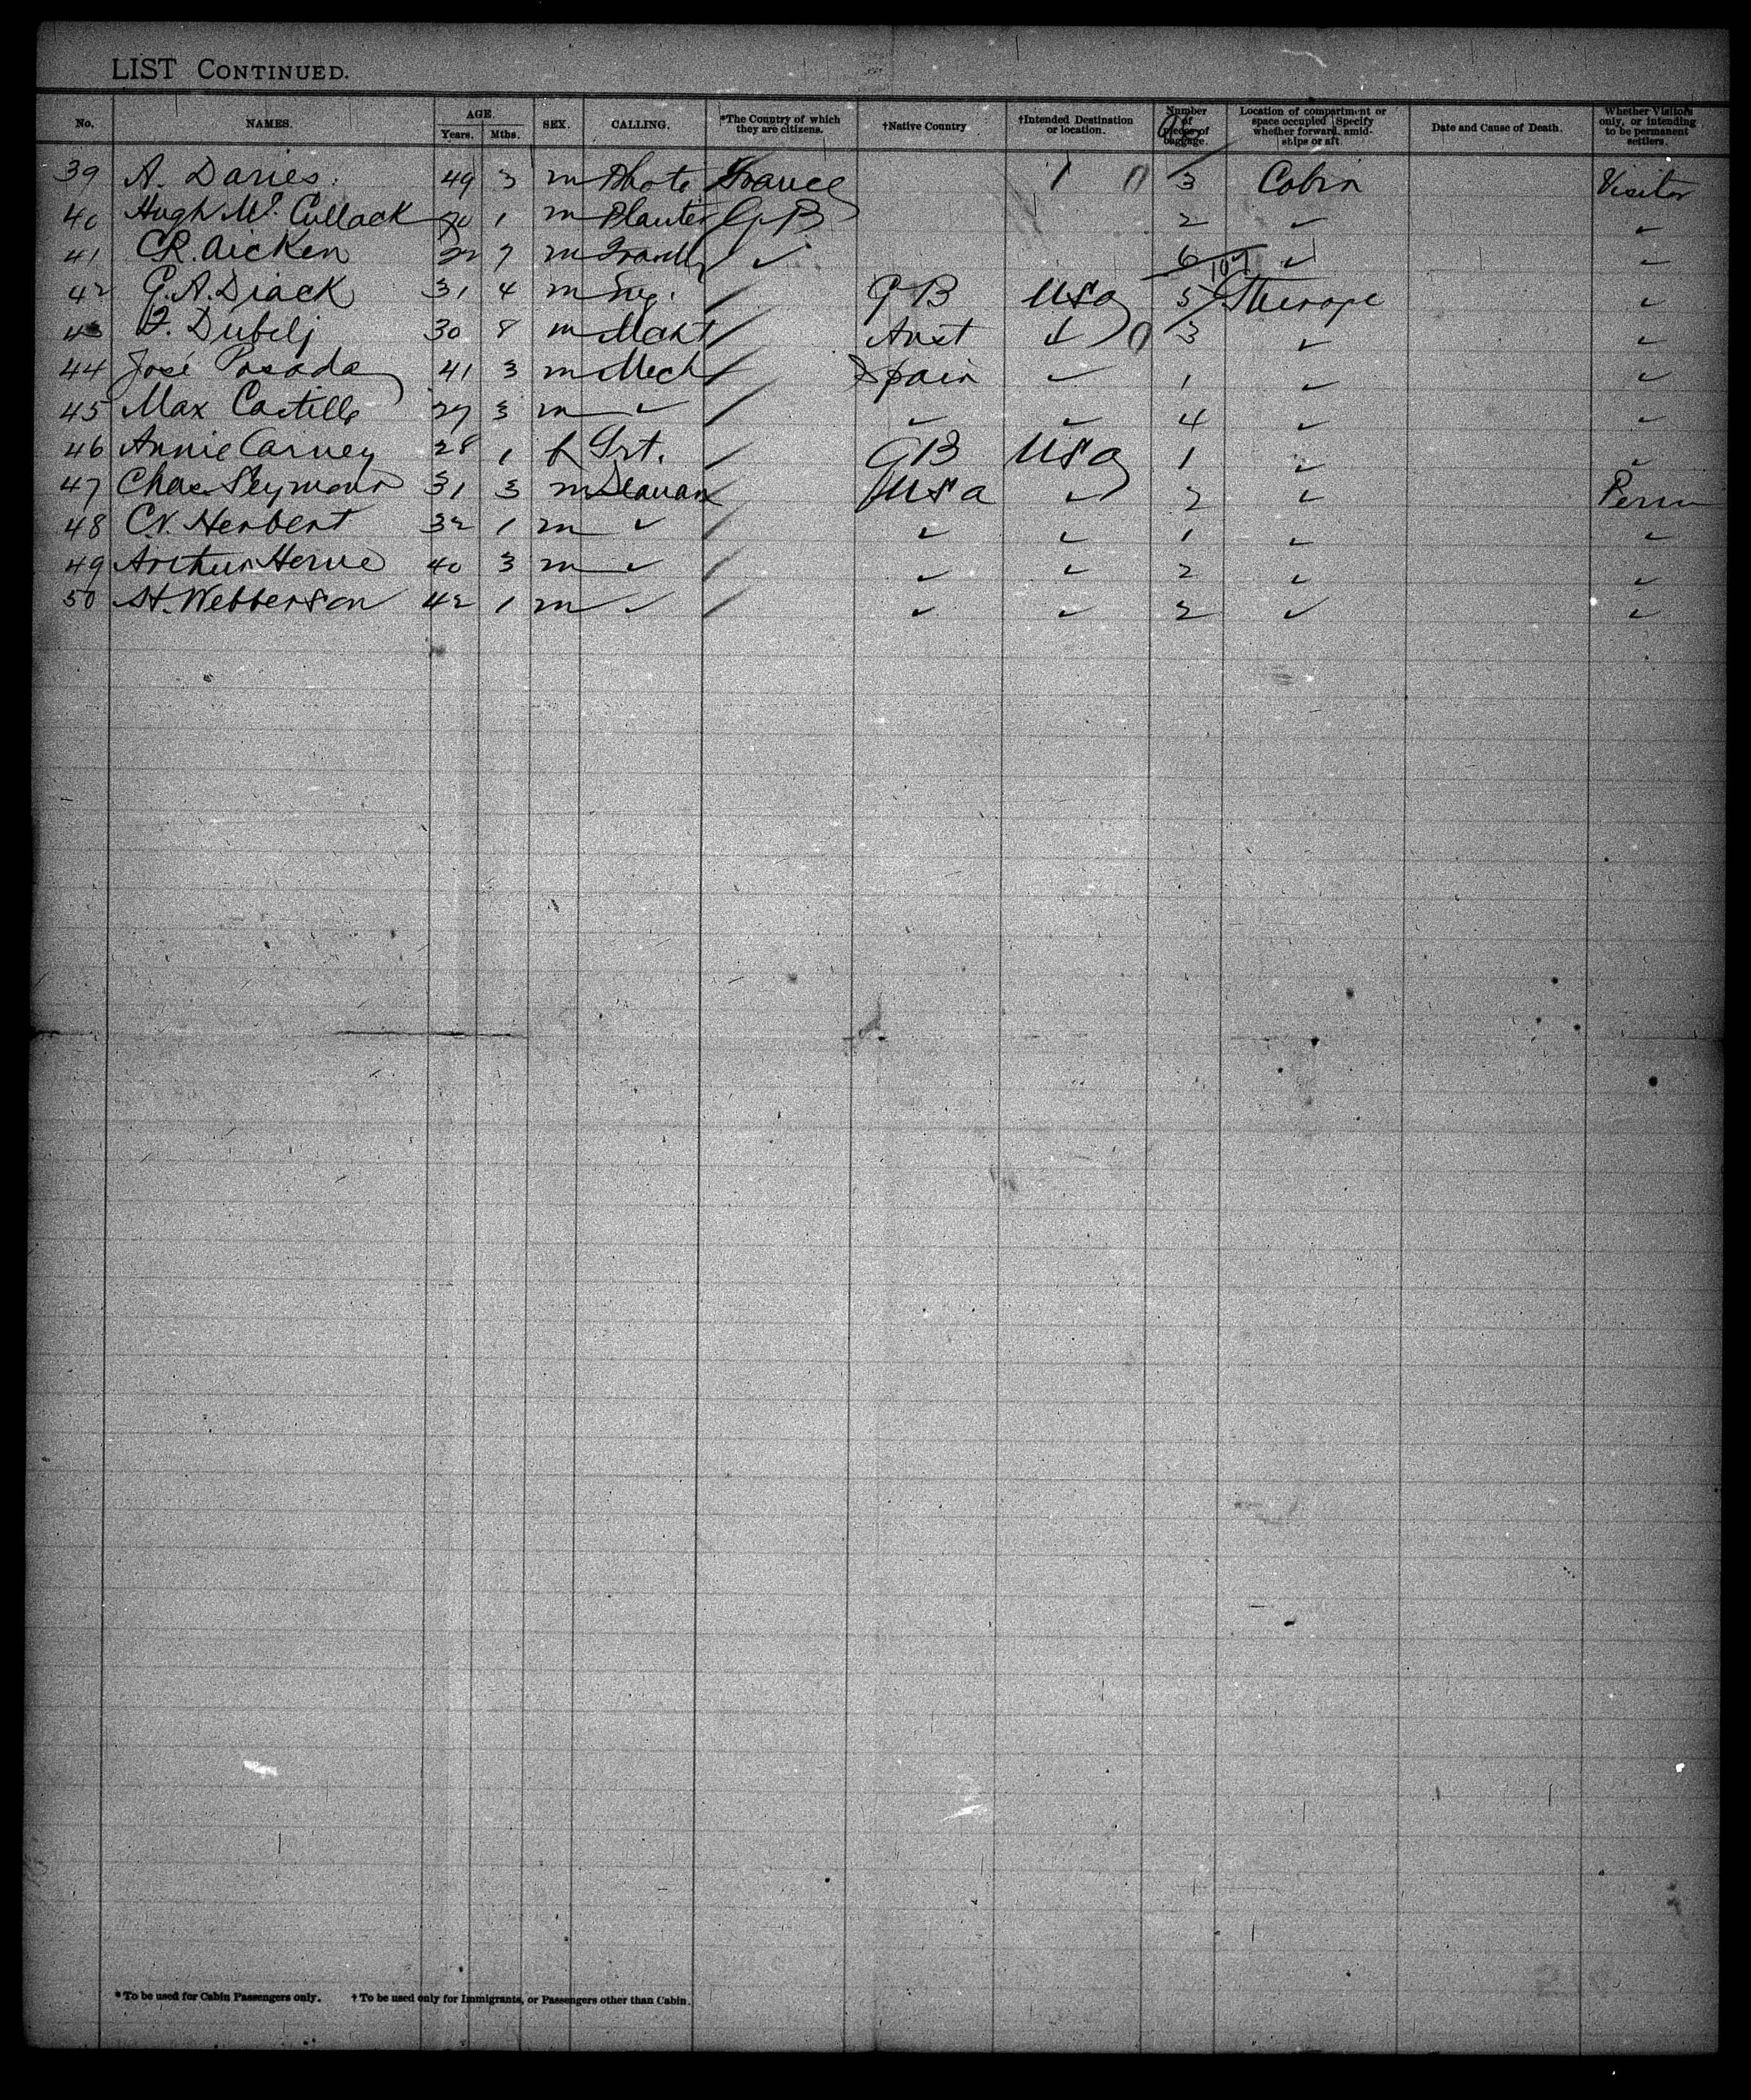 LIST CONTINUED.
No. NAMES. AGE Years. Mths. SEX. CALLING. *The Country of which they are citizens. †Native Country †Intended Destination or location. Number of pieces of baggage. Location of compartment or space occupied Specify whether forward, amid-ships or aft Date and Cause of Death. Whether Visitors only, or intending to be permanent settlers.
39 A. Davies. 49 3 m Photo France 3 Cabin Visitor
40 Hugh Mc. Cullack 1 m Planter G B 2 ✓ ✓
41 C.R. Aicken 22 7 m ✓ 6 ✓ ✓
42 G.A. Diack 31 4 m Eng. / G B USa 5 Stierage ✓
43 F. Dubelj 30 8 m Mcht / Aust ✓ 3 ✓ ✓
44 José Posada 41 3 m Mech / Spain ✓ 1 ✓ ✓
45 Max Castillo 27 3 m ✓ / ✓ ✓ 4 ✓ ✓
46 Annie Carney 28 1 f Srt. / G B USa 1 ✓ ✓
47 Chas. Seymour 31 3 m Seaman / USa ✓ 2 ✓ Perm
48 C.V. Herbert 32 1 m ✓ / ✓ ✓ 1 ✓ ✓
49 Arthur Herve 40 3 m ✓ / ✓ ✓ 2 ✓ ✓
50 St. Webberson 42 1 m ✓ / ✓ ✓ 2 ✓ ✓
* To be used for Cabin Passengers only. † To be used only for Immigrants, or Passengers other than Cabin.